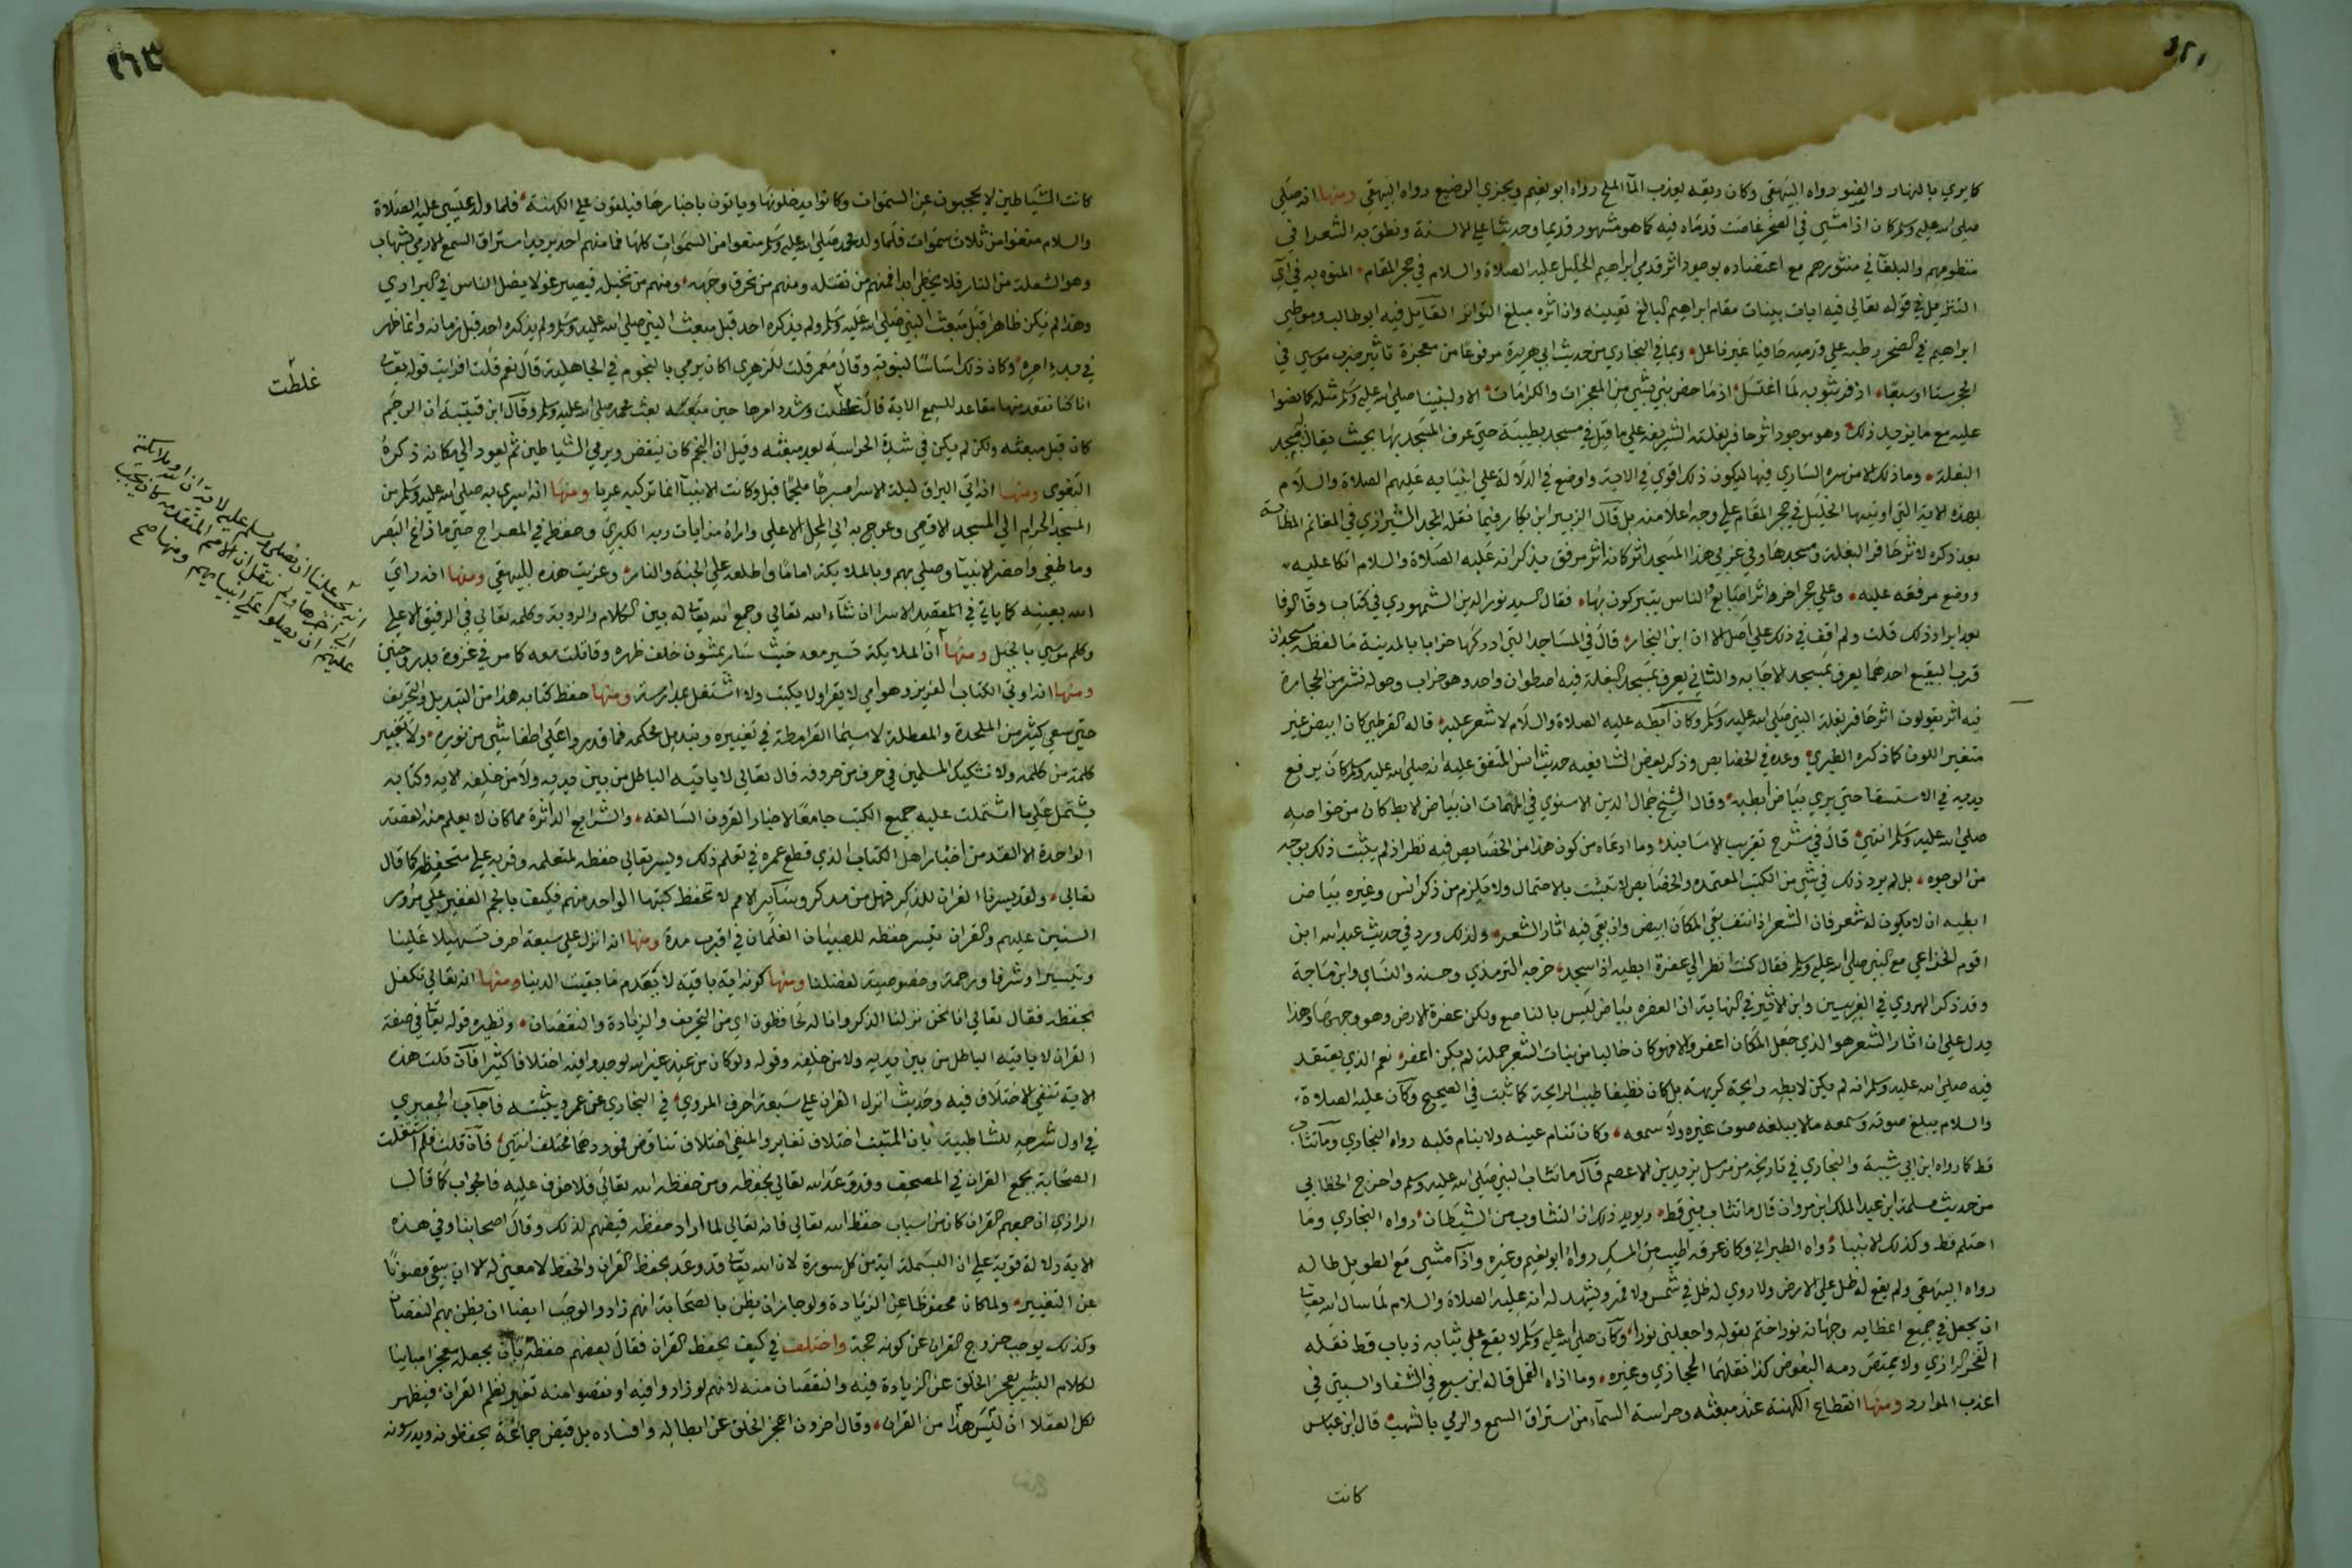 ٤٢١
كا يري بالنهار والضوء رواه البيهقي وكان ريقه يعذب المآ الملح رواه ابو نعيم ويجزي الرضيع رواه البيهقي ومنها انه صلى
صلى الله عليه وسلم كان اذا مشي في الصخر غاصت قدماه فيه كما هو مشهور قديما وحديثا على الالسنة ونطق به الشعرا في
منظومهم والبلغآ في منثورهم مع اعتضاده بوجود اثر قدمي ابراهيم الخليل عليه الصلاة والسلام في حجر المقام المنوه به في آي
التنزيل في قوله تعالى فيه ايات بينات مقام ابراهيم البالغ تعيينه وانه اثره مبلغ التواتر القايل فيه ابو طالب وموطئ
ابراهيم في الصخر رطبه على قدميه حافيا غير ناعل وبما في البخاري من حديث ابي هريرة مرفوعا من معجزة تاثير ضرب موسي في
الحجر ستا او سبعا اذ فر بثوبه لما اغتسل اذ ما خص نبي بشيء من المعجزات والكرامات الا ولنبينا صلى الله عليه وسلم مثله كما نصوا
عليه مع ما يزيد ذلك وهو موجود اثر حافر بغلته الشريفة على ما قيل في مسجد بطيبة حتى عرف المسجد بها بحيث يقال مسجد
البغلة وما ذلك الا من سره الساري فيها ليكون ذلك اقوي في الاية واوضح في الدلالة على انبيايه عليهم الصلاة والسلام
بهذه الاية التي اوتيها الخليل في حجر المقام على وجه اعلا منه بل قال الزبير ابن بكار فيما نقله المجد الشيرازي في المغانم المطابة
بعد ذكره لاثر حافر البغلة ومسجدها وفي غربي هذا المسجد اثر كانه اثر مرفق يذكر انه عليه الصلاة والسلام اتكا عليه
ووضع مرفقه عليه وعلى حجر اخر اثر اصابع والناس يتبركون بها فقال السيد نور الدين السمهودي في كتاب وفا الوفا
بعد ايراد ذلك قلت ولم اقف في ذلك على اصل الا ان ابن النجار قال في المساجد التي ادركها خرابا بالمدينة ما لفظه مسجدان
قرب البقيع احدهما يعرف بمسجد الاجابة والثاني يعرف بمسجد البغلة فيه اصطوان واحد وهو خراب وحوله نشر من الحجارة
فيه اثر يقولون اثر حافر بغلة النبي صلى الله عليه وسلم وكان ابطه عليه الصلاة والسلام لا شعر عليه قاله القرطبي كان ابيض غير
متغير اللون كما ذكره الطبري وعده في الخصايص وذكر بعض الشافعية حديث انس المتفق عليه انه صلى الله عليه وسلم كان يرفع
يديه في الاستسقا حتى يري بياض ابطيه وقال الشيخ جمال الدين الاسنوي في المهمات ان بياض الابط كان من خواصه
صلى الله عليه وسلم انتهي قال في شرح تقريب الاسانيد وما ادعاه من كون هذا من الخصايص فيه نظر اذ لم يثبت ذلك بوجه
من الوجوه بل لم يرد ذلك في شي من الكتب المعتمدة والخصايص لا تثبت بالاحتمال ولا يلزم من ذكر انس وغيره بياض
ابطيه ان لا يكون له شعر فان الشعر اذا نتف بقي المكان ابيض وان بقي فيه اثار الشعر ولذلك ورد في حديث عبد الله ابن
اقرم الخزاعي مع النبي صلى الله عليه وسلم فقال كنت انظر الي عفرة ابطيه اذا سجد خرجه الترمذي وحسنه والنساي وابن ماجة
وقد ذكر الهروي في الغريبين وابن الاثير في النهاية ان العفره بياض ليس بالناصع ولكن عفرة الارض وهو وجهها وهذا
يدل على ان اثار الشعر هو الذي جعل المكان اعفر والا فلو كان خاليا من نبات الشعر جملة لم يكن اعفر نعم الذي يعتقد
فيه صلى الله عليه وسلم انه لم يكن لابطه رايحة كريهة بل كان نظيفا طيب الرايحة كما ثبت في الصحيح وكان عليه الصلاة
والسلام يبلغ صوته وسمعه ما لا يبلغه صوت غيره ولا سمعه وكان تنام عينه ولا ينام قلبه رواه البخاري وما تثاب
قط كما رواه ابن ابي شيبة والبخاري في تاريخه من مرسل يزيد بن الاصم قال ما تثاب النبي صلى الله عليه وسلم واخرج الخطابي
من حديث مسلمة ابن عبد الملك ابن مروان قال ما تثاب نبي قط ويويد ذلك ان التثاوب من الشيطان رواه البخاري وما
احتلم قط وكذلك الانبيا رواه الطبراني وكان عرقه اطيب من المسك رواه ابو نعيم وغيره واذا مشي مع الطويل طاله
رواه البيهقي ولم يقع له ظل على الارض ولا روي له ظل في شمس ولا قمر ويشهد له انه عليه الصلاة والسلام لما سال الله تعالى
ان يجعل في جميع اعضايه وجهاته نورا ختم بقوله واجعلني نورا وكان صلى الله عليه وسلم لا يقع على ثيابه ذباب قط نقله
الفخر الرازي ولا يمتص دمه البعوض كذا نقلهما الحجازي وغيره وما اذاه القمل قاله ابن سبع في الشفا والسبتي في
اعذب الموارد ومنها انقطاع الكهنة عند مبعثه وحراسة السمآء من استراق السمع والرمي بالشهب قال ابن عباس
كانت
كانت الشياطين لا يحجبون عن السموات وكانوا يدخلونها وياتون باخبارها فيلقون على الكهنة فلما ولد عيسي عليه الصلاة
والسلام منعوا من ثلاث سموات فلما ولد محمد صلى الله عليه وسلم منعوا من السموات كلها فما منهم احد يريد استراق السمع الا رمي بشهاب
وهو الشعلة من النار فلا يخطي ابدا فمنهم من تقتله ومنهم من تحرق وجهه ومنهم من تخبله فيصير غولا يضل الناس في البراري
وهذا لم يكن ظاهرا قبل مبعث النبي صلى الله عليه وسلم ولم يذكره احد قبل مبعث النبي صلى الله عليه وسلم ولم يذكره احد قبل زمانه وانما ظهر
في بدء امره وكان ذلك اساسا لنبوته وقال معمر قلت للزهري اكان يرمي بالنجوم في الجاهلية قال نعم قلت افرايت قوله تعالى
غلظت
انا كنا نقعد منها مقاعد للسمع الاية قال غلظت وشدد امرها حين مبعثه بعث محمد صلى الله عليه وسلم وقال ابن قتيبة ان الرجم
كان قبل مبعثه ولكن لم يكن في شدة الحراسة بعد مبعثه وقيل ان النجم كان ينقض ويرمي الشياطين ثم يعود الي مكانه ذكره
البغوي ومنها انه اتي البراق ليلة الاسرا مسرجا ملجما قيل وكانت الانبيآ انما تركبه عريا ومنها انه اسري به صلى الله عليه وسلم من
المسجد الحرام الي المسجد الاقصي وعرج به الي المحل الاعلى واراه من ايات ربه الكبري وحفظه في المعراج حتى ما زاغ البصر
وما طغي واحضر الانبيآ وصلي بهم وبالملايكة اماما واطلعه على الجنة والنار وعزيت هذه للبيهقي ومنها انه راي
الله بعينيه كما ياتي في المقصد الاسرا ان شاء الله تعالي وجمع الله تعالى له بين الكلام والروية وكلمه تعالي في الرفيق الاعلي
وكلم موسي بالجبل ومنها ان الملايكة تسير معه حيث سار يمشون خلف ظهره وقاتلت معه كما مر في غزوة بدر وحنين
انه يجب علينا ان نصلي ونسلم عليه لاية ان الله وملايكته
الى اخرها ولم ينقل ان الامم المتقدمة كان يجب
عليهم ان يصلوا على انبيايهم ومنها صح
ومنها انه اوتي الكتاب العزيز وهو امي لا يقرا ولا يكتب ولا اشتغل بمدارسة ومنها حفظ كتابه هذا من التبديل والتحريف
حتى سعي كثير من الملحدة والمعطلة لا سيما القرامطة في تغييره وتبديل محكمه فما قدروا على اطفا شيء من نوره ولا تغيير
كلمة من كلمه ولا تشكيك المسلمين في حرف من حروفه قال تعالي لا ياتيه الباطل من بين يديه ولا من خلفه الاية وكتابه
يشتمل على ما اشتملت عليه جميع الكتب جامعا لاخبار القرون السالفة والشرايع الداثرة مما كان لا يعلم منه القصة
الواحدة الا الفذ من اخبار اهل الكتاب الذي قطع عمره في تعلم ذلك ويسر تعالي حفظه لمتعلمه وقربه على متحفظه كما قال
تعالي ولقد يسرنا القران للذكر فهل من مدكر وساير الامم لا تحفظ كتبها الواحد منهم فكيف بالجم الغفير على مرور
السنين عليهم والقران متيسر حفظه للصبيان الغلمان في اقرب مدة ومنها انه انزل على سبعة احرف تسهيلا علينا
وتيسيرا وشرفا ورحمة وخصوصية لفضلنا ومنها كونه اية باقية لا تعدم ما بقيت الدنيا ومنها انه تعالي تكفل
بحفظه فقال تعالي انا نحن نزلنا الذكر وانا له لحافظون اي من التحريف والزيادة والنقصان ونظيره قوله تعالى في صفة
القران لا ياتيه الباطل من بين يديه ولا من خلفه وقوله ولو كان من عند غير الله لوجدوا فيه اختلافا كثيرا فان قلت هذه
الاية تنفي الاختلاف فيه وحديث انزل القران على سبعة احرف المروي في البخاري عن عمر ويثبته فاجاب الجعبري
في اول شرحه للشاطبية بان المثبت اختلاف تغاير والمنفي اختلاف تناقض فموردهما مختلف انتهي فان قلت فلم اشتغلت
الصحابة بجمع القران في المصحف وقد وعد الله تعالي بحفظه ومن حفظه الله تعالي فلا خوف عليه فالجواب كما قال
الرازي ان جمعهم القران كان من اسباب حفظ الله تعالي فانه تعالي لما اراد حفظه قيضهم لذلك وقال اصحابنا وفي هذه
الاية دلالة قوية على ان البسملة اية من كل سورة لان الله تعالى قد وعد بحفظ القران والحفظ لا معني له الا ان يبقي مصونا
عن التغيير ولما كان محفوظا عن الزيادة ولو جاز ان يظن بالصحابة انهم زادوا لوجب ايضا ان يظن بهم النقصان
وكذلك يوجب خروج القران عن كونه حجة واختلف في كيف يحفظ القران فقال بعضهم حفظه بان يجعله معجزا مباينا
لكلام البشر يعجز الخلق عن الزيادة فيه والنقصان منه لانهم لو زادوا فيه او نقصوا منه تغير نظم القران فيظهر
لكل العقلا ان ليس هذا من القران وقال اخرون اعجز الخلق عن ابطاله وافساده بل قيض جماعة يحفظونه ويدرسونه